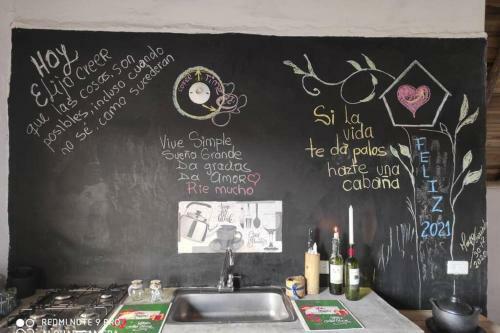 Hoy
Elijo creer
que las cosas, son
posibles, incluso cuando
no se, como sucederan
Vive Simple
Sueña Grande
Da gracias
Da Amor
Rie mucho
Si la
vida
te da palos
hazte una
cabaña
FELIZ
2021
REDMI NOTE 9 PRO